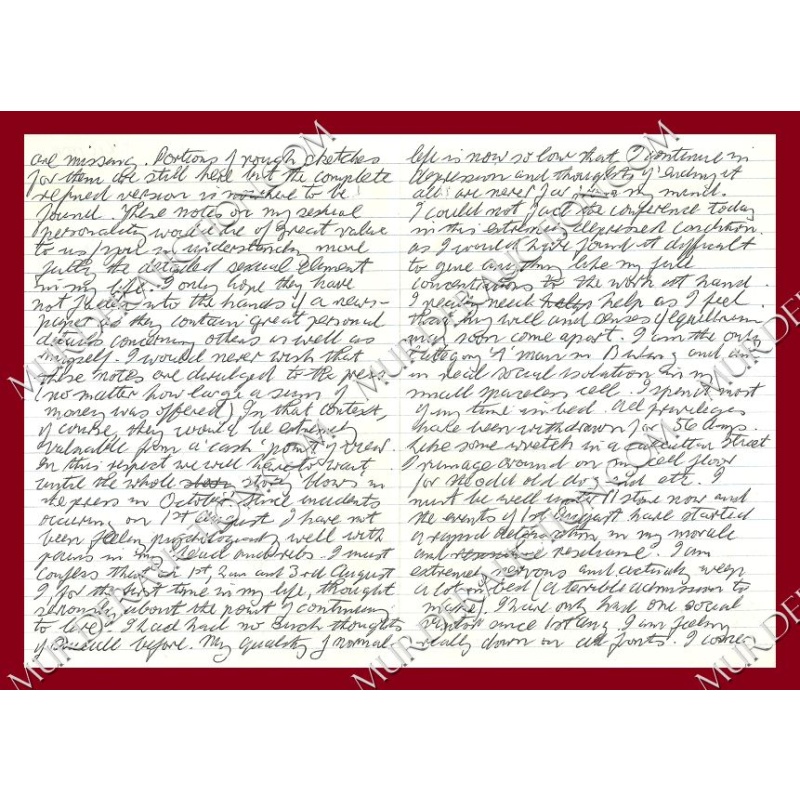 are missing. Portions of rough sketches
for them are still here but the complete
refined version is nowhere to be
found. These notes on my sexual
personality would be of great value
to us in understanding more
fully the detailed sexual element
in my life. I only hope they have
not fallen into the hands of a news-
as they contain great personal
details concerning others as well as
myself. I would never wish that
these notes are divulged to the press
(no matter how large a sum of
money was offered) In that context,
of course, they would be extremely
valuable from a 'cash' point of view.
In this respect we will have to wait
until the whole story 'blows' in
the press in October. Since incidents
occuring on 1st August I have not
been feeling well with
pains in my head and ribs. I must
confess that on 1st, 2nd and 3rd August
I for the first time in my life, thought
seriously about the point of continuing
to live. I had had no such thoughts
of before. My quality of normal
life is now so low that I continue in
depression and thoughts of ending it
all are never far in my mind.
I could not face the conference today
in this extremely depressed condition
as I would have found it difficult
to give anything like my full
concentrations to the work at hand.
I need help as I feel
that my will and senses of equilibrium
may soon come apart. I am the only
category 'A' man in B wing and am
in dead social isolation in my
small spaceless cell. I spend most
of my time in bed. All privileges
have been withdrawn for 56 days.
Like some wretch in a Calcutta street
I rumage around on my cell floor
for the odd old dog end etc. I
must be well under 11 stone now and
the events of 1st August have started
a rapid in my morale
and resolve. I am
extremely nervous and actually weep
alone in bed (a terrible admission to
make). I have only had one social
visitor since 1st Aug. I am feeling
really down on all fronts. I
MURDERAUCTION.COM